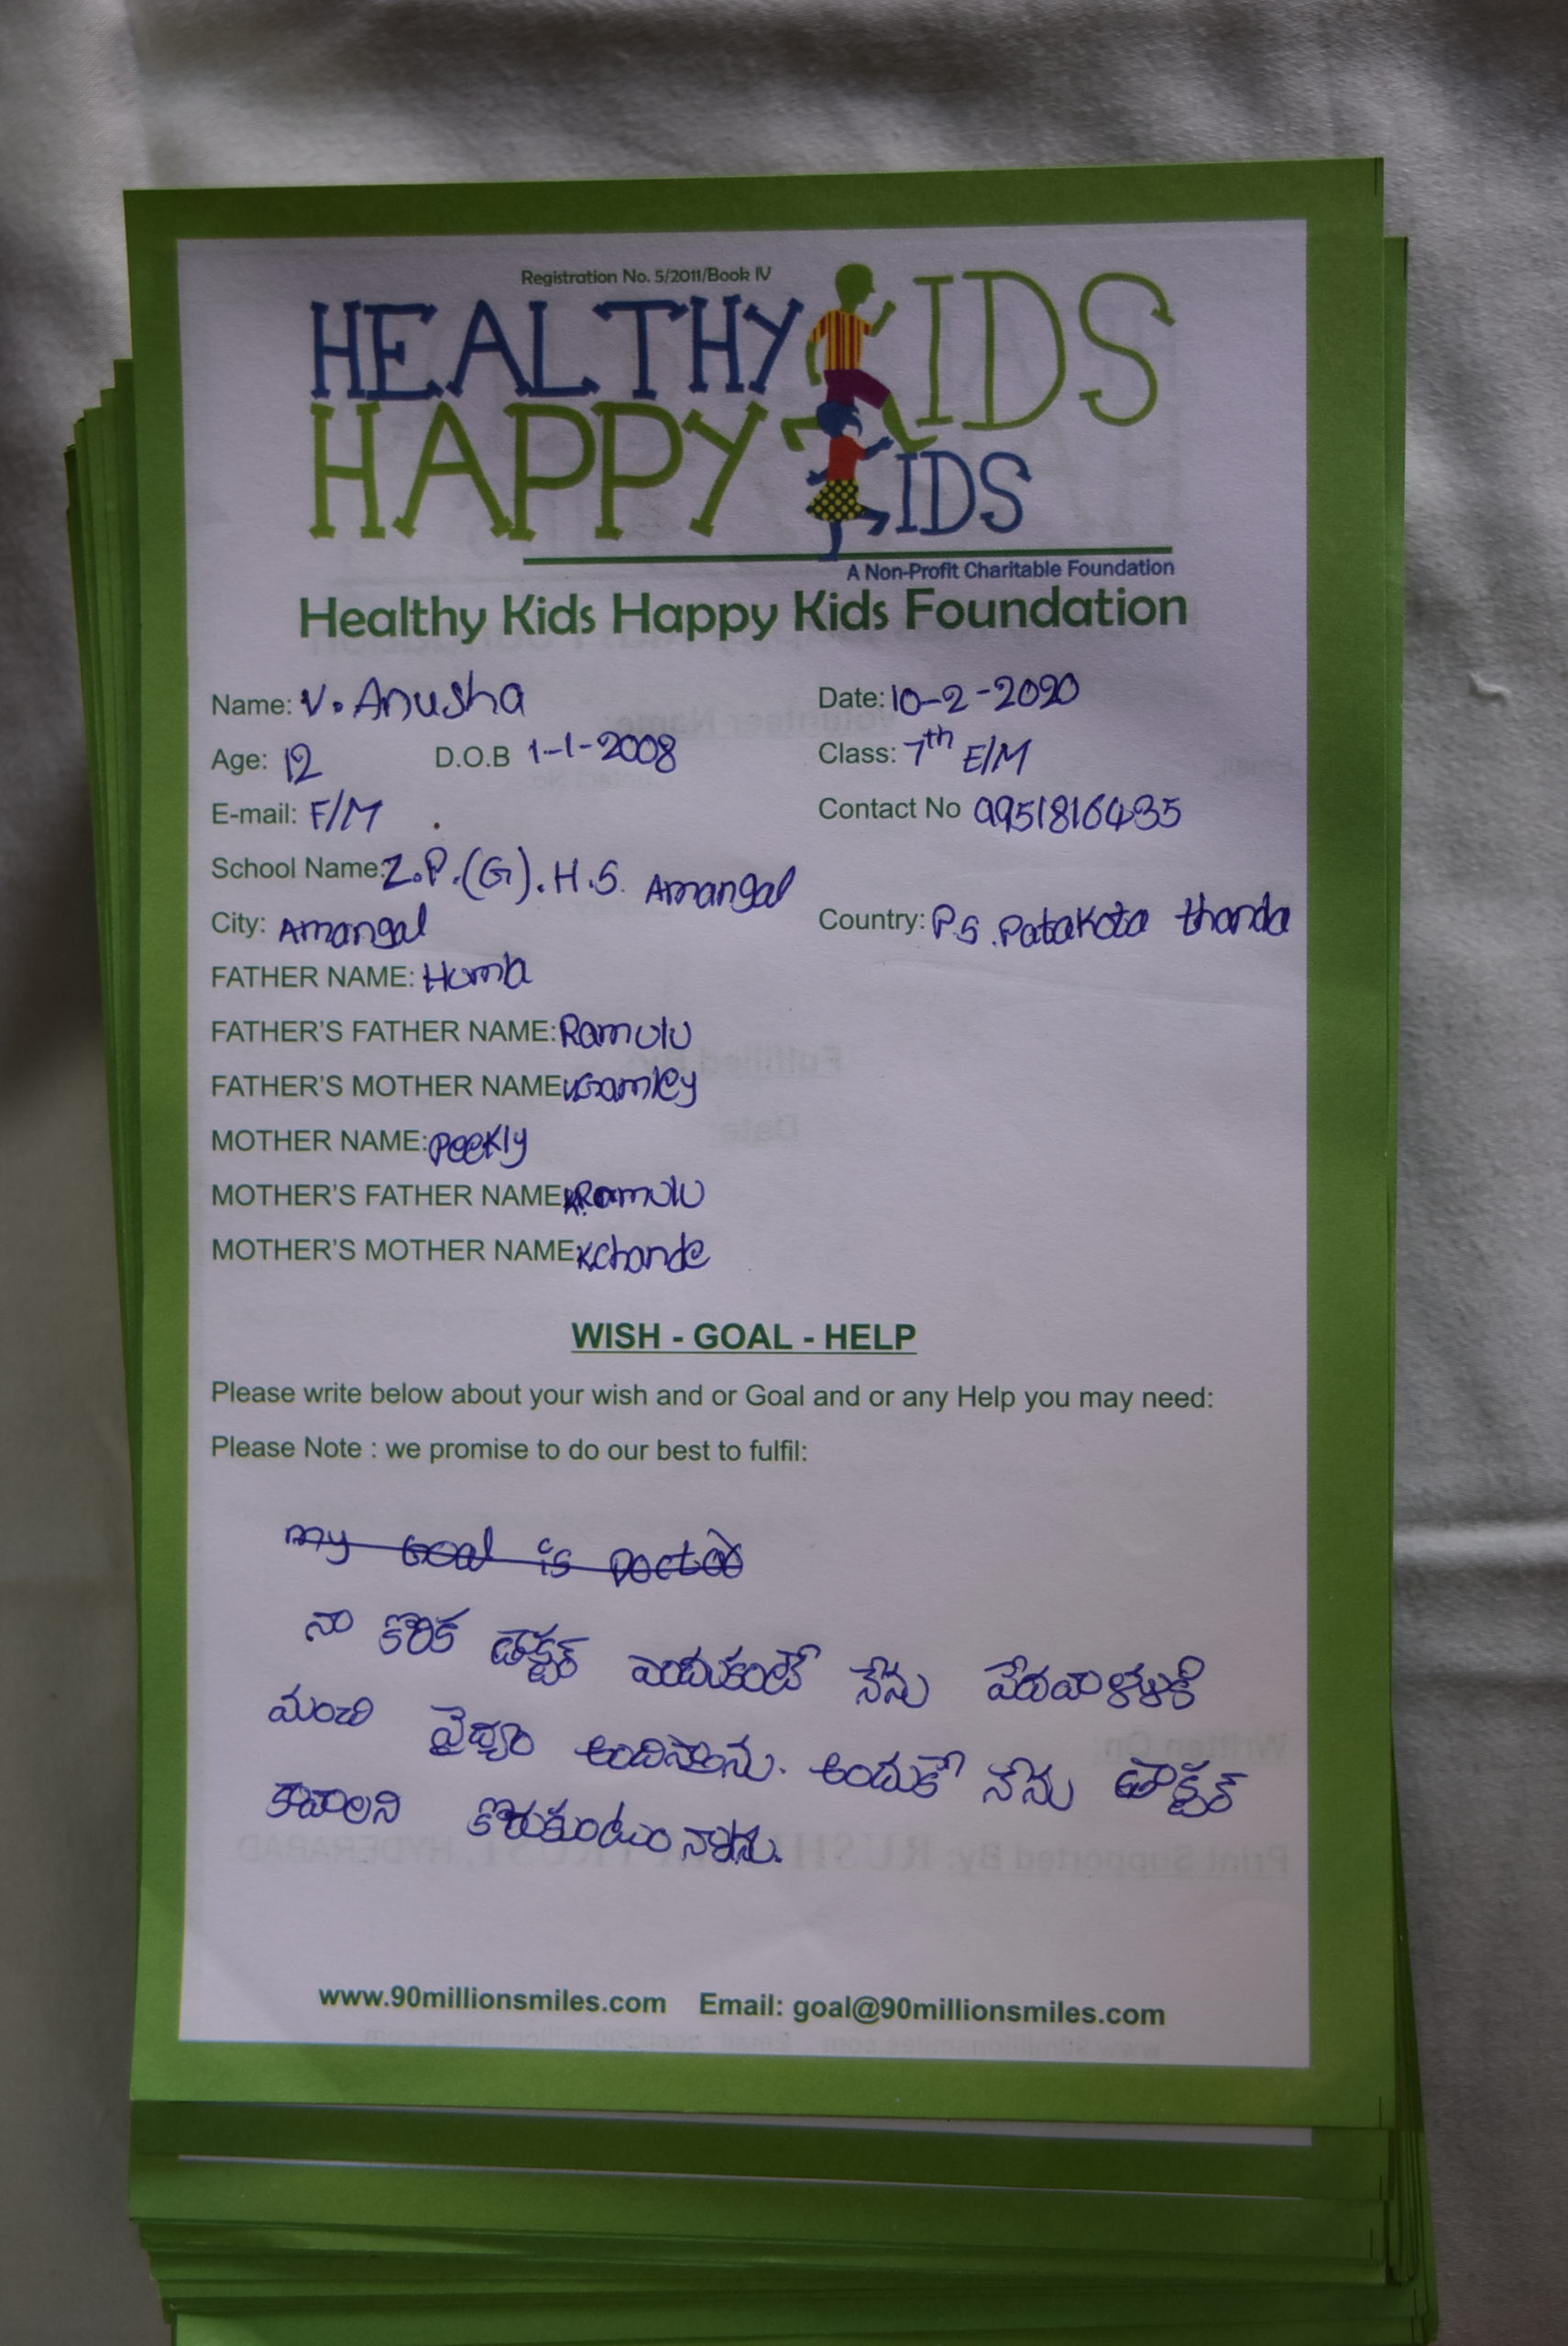 Registration No. 5/2011/Book IV
HEALTHY KIDS
HAPPY KIDS
A Non-Profit Charitable Foundation
Healthy Kids Happy Kids Foundation
Name: V. Anusha Date: 10-2-2020
Age: 12 D.O.B 1-1-2008 Class: 7th E/M
E-mail: F/M Contact No 9951816435
School Name: Z.P.(G).H.S. Amangal
City: Amangal Country: P.S. Patakota thanda
FATHER NAME: Humla
FATHER'S FATHER NAME: Ramulu
FATHER'S MOTHER NAME
MOTHER NAME: Peekly
MOTHER'S FATHER NAME Ramulu
MOTHER'S MOTHER NAME: K.Chande
WISH - GOAL - HELP
Please write below about your wish and or Goal and or any Help you may need:
Please Note : we promise to do our best to fulfil:
my Goal is Doctor
నా కొరిక డాక్టర్ ఎందుకంటే నేను పేదవాళ్ళుకి
మంచి వైద్యం అందిస్తాను. అందుకే నేను డాక్టర్
కావాలని కొరుకుంటున్నాను.
www.90millionsmiles.com Email: goal@90millionsmiles.com